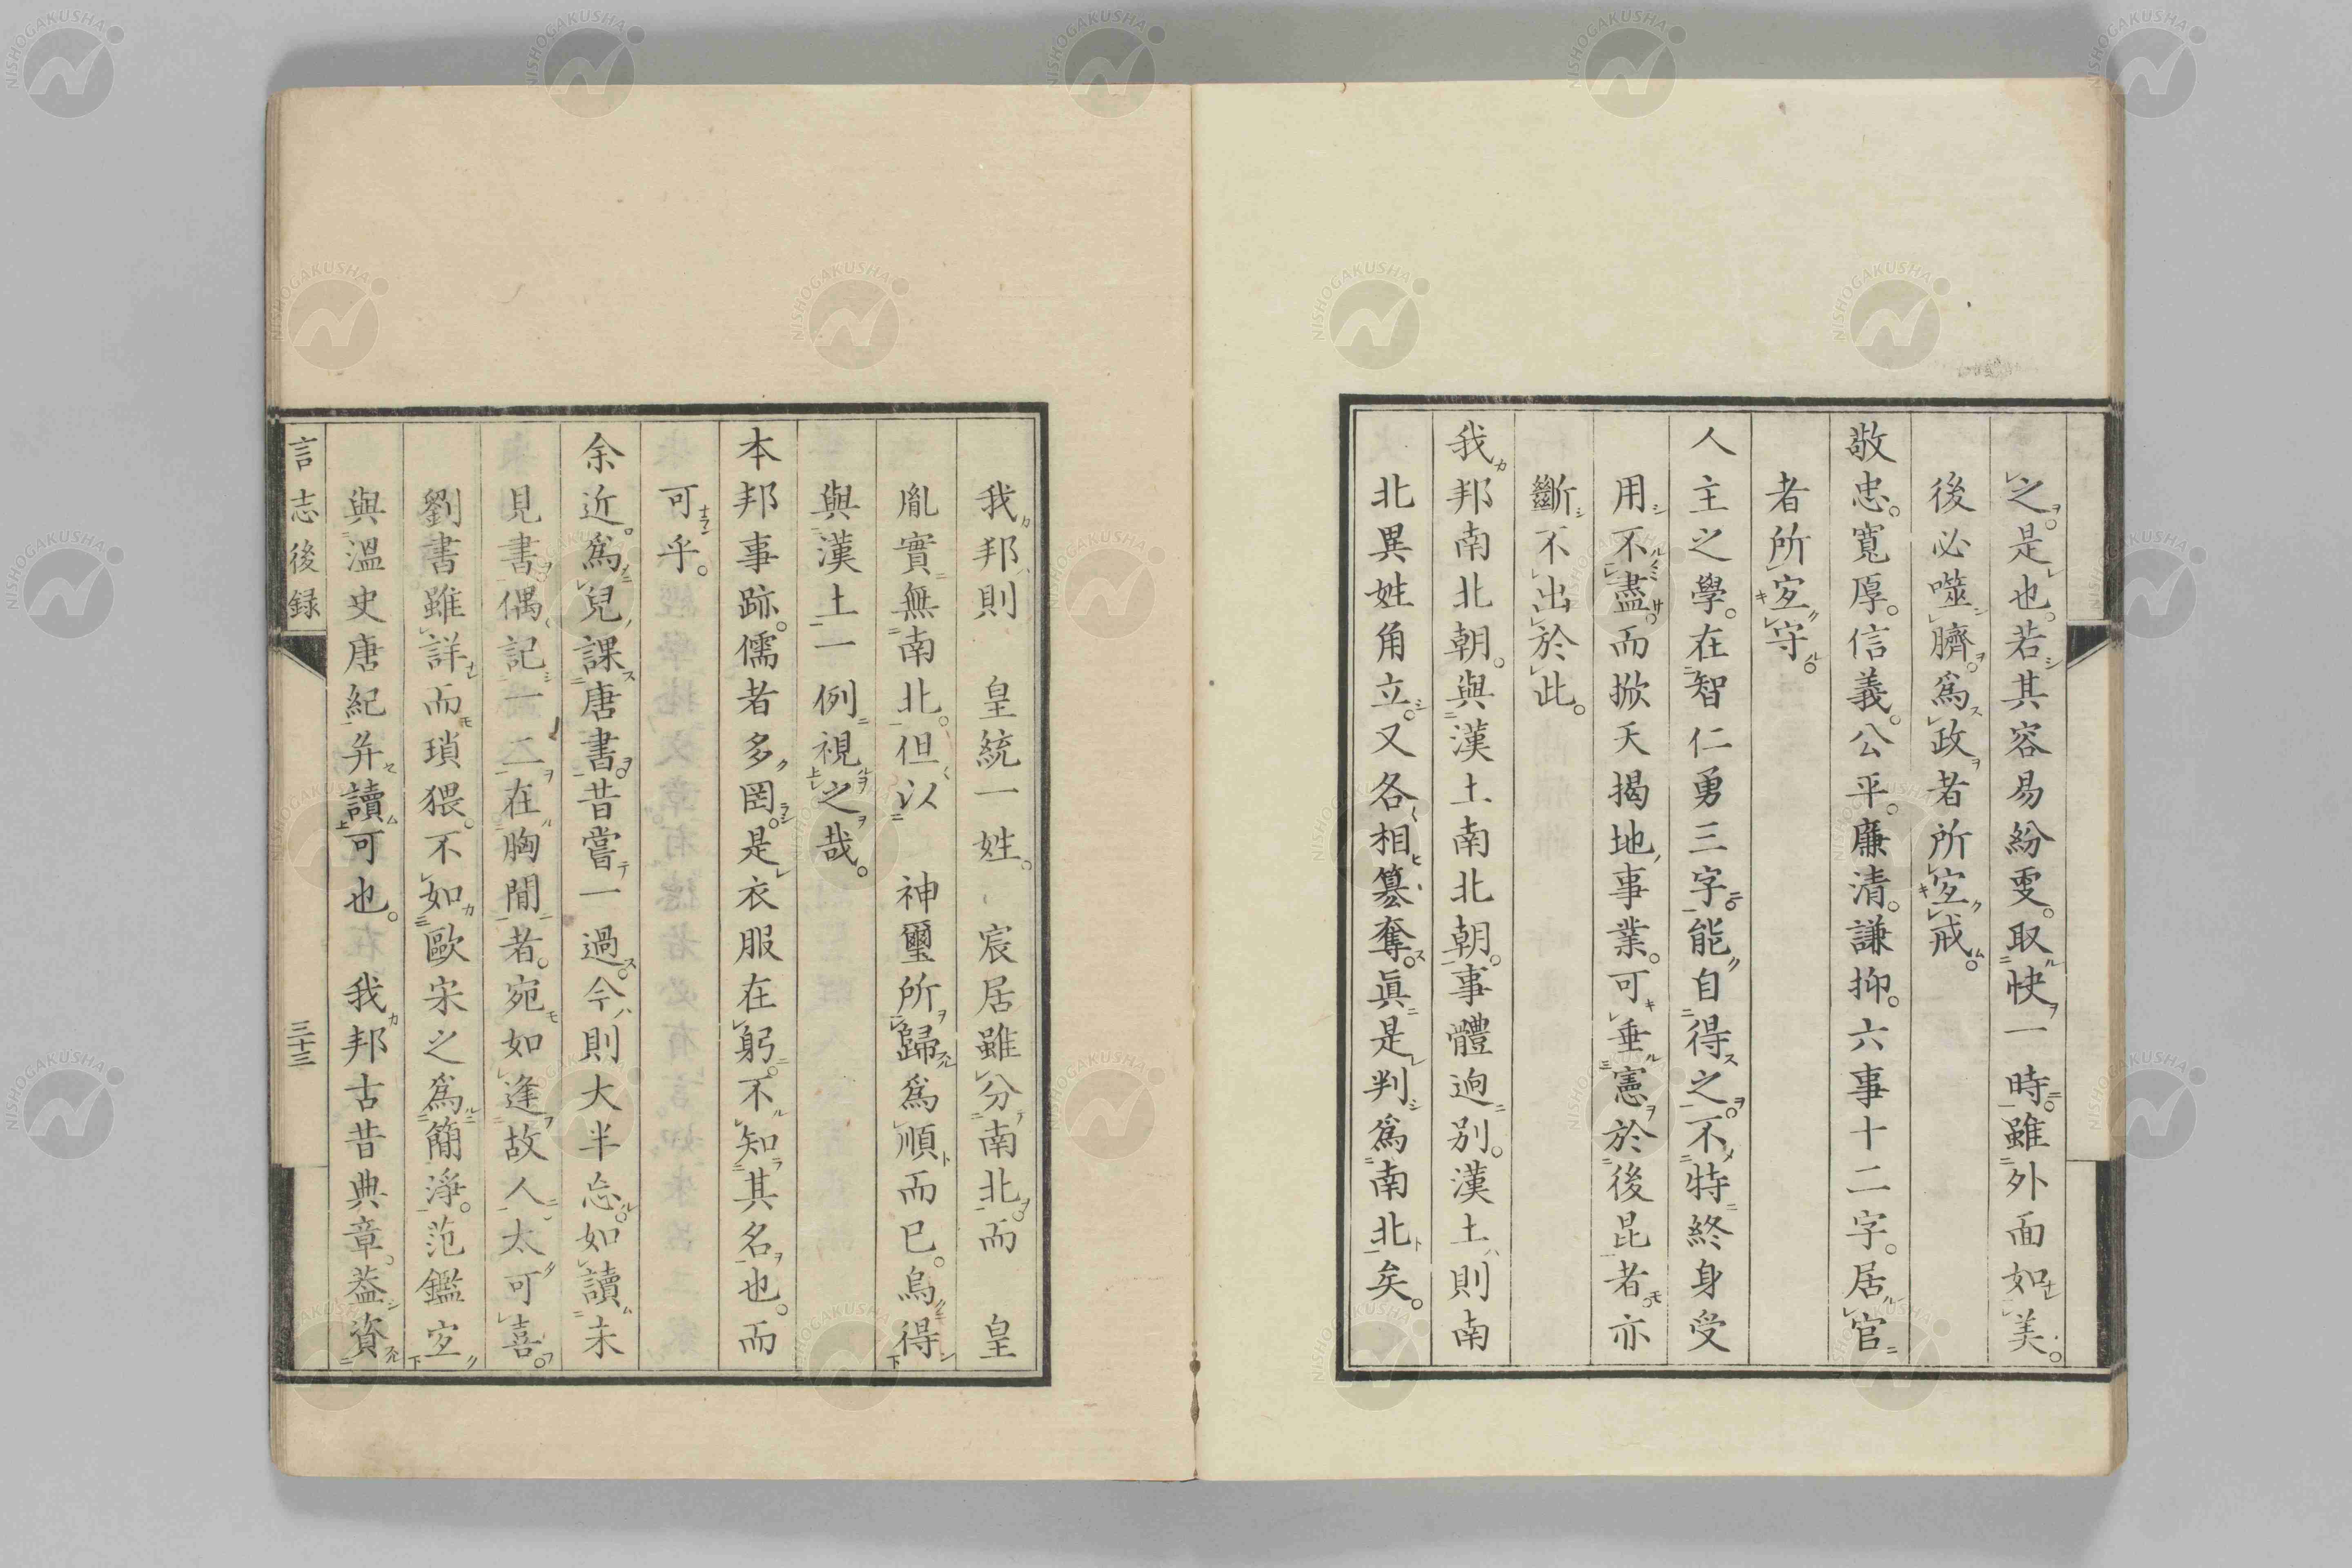 之。是也。若其容易紛更。取快一時。雖外面如美。
後必噬臍。為政者所宜戒。
敬忠。寬厚。信義。公平。廉清。謙抑。六事十二字。居官
者所宜守。
人主之學。在智仁勇三字。能自得之。不特終身受
用不盡。而掀天揭地事業。可垂憲於後昆者。亦
斷不出於此。
我邦南北朝。與漢土南北朝。事體迥別。漢土則南
北異姓角立。又各相篡奪。眞是判爲南北矣。
我邦則 皇統一姓。宸居雖分南北。而 皇
胤實無南北。但以 神璽所歸爲順而已。烏得
與漢土一例視之哉。
本邦事跡。儒者多罔。是衣服在躬。不知其名也。而
可乎。
余近爲兒課唐書。昔嘗一過。今則大半忘。如讀未
見書。偶記一二在胸間者。宛如逢故人。太可喜。
劉書雖詳而瑣猥。不如歐宋之爲簡淨。范鑑宜
與溫史唐紀弁讀可也。我邦古昔典章。葢資
言志後録
三十三
NISHOGAKUSHA